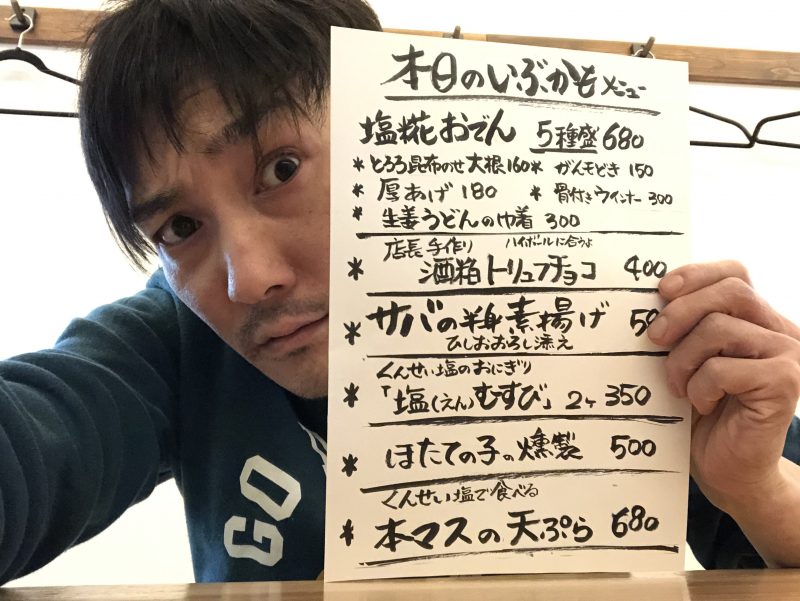 本日のいぶかもメニュー
塩糀おでん 5種盛 680
* とろろ昆布のせ大根 160 * がんモどき 150
* 厚あげ 180 * 骨付きウインナー 300
* 生姜うどんの巾着 300
店長手作り ハイボールに合うよ
* 酒粕トリュフチョコ 400
* サバの半身素揚げ
ひしおおろし添え
くんせい塩のおにぎり
* 「塩(えん)むすび」 2ヶ 350
* ほたての子の燻製 500
くんせい塩で食べる
* 本マスの天ぷら 680
GO